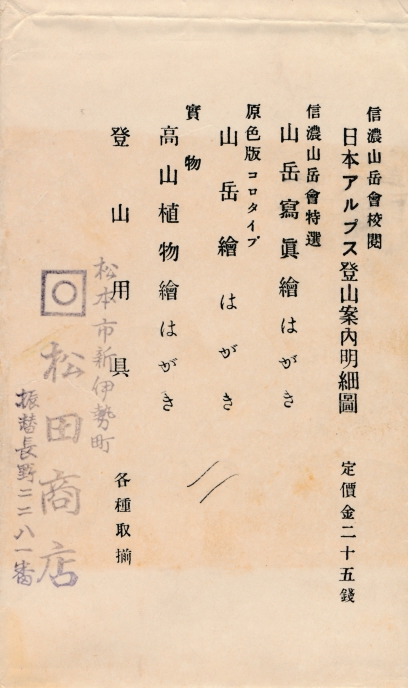 信濃山岳會校閲
日本アルプス登山案內明細圖 定價金二十五錢
信濃山岳會特選
山岳寫眞繪はがき
原色版 コロタイプ
山岳繪はがき
實物
高山植物繪はがき
登山用具 各種取揃
松本市新伊勢町
松田商店
振替長野二二八一番